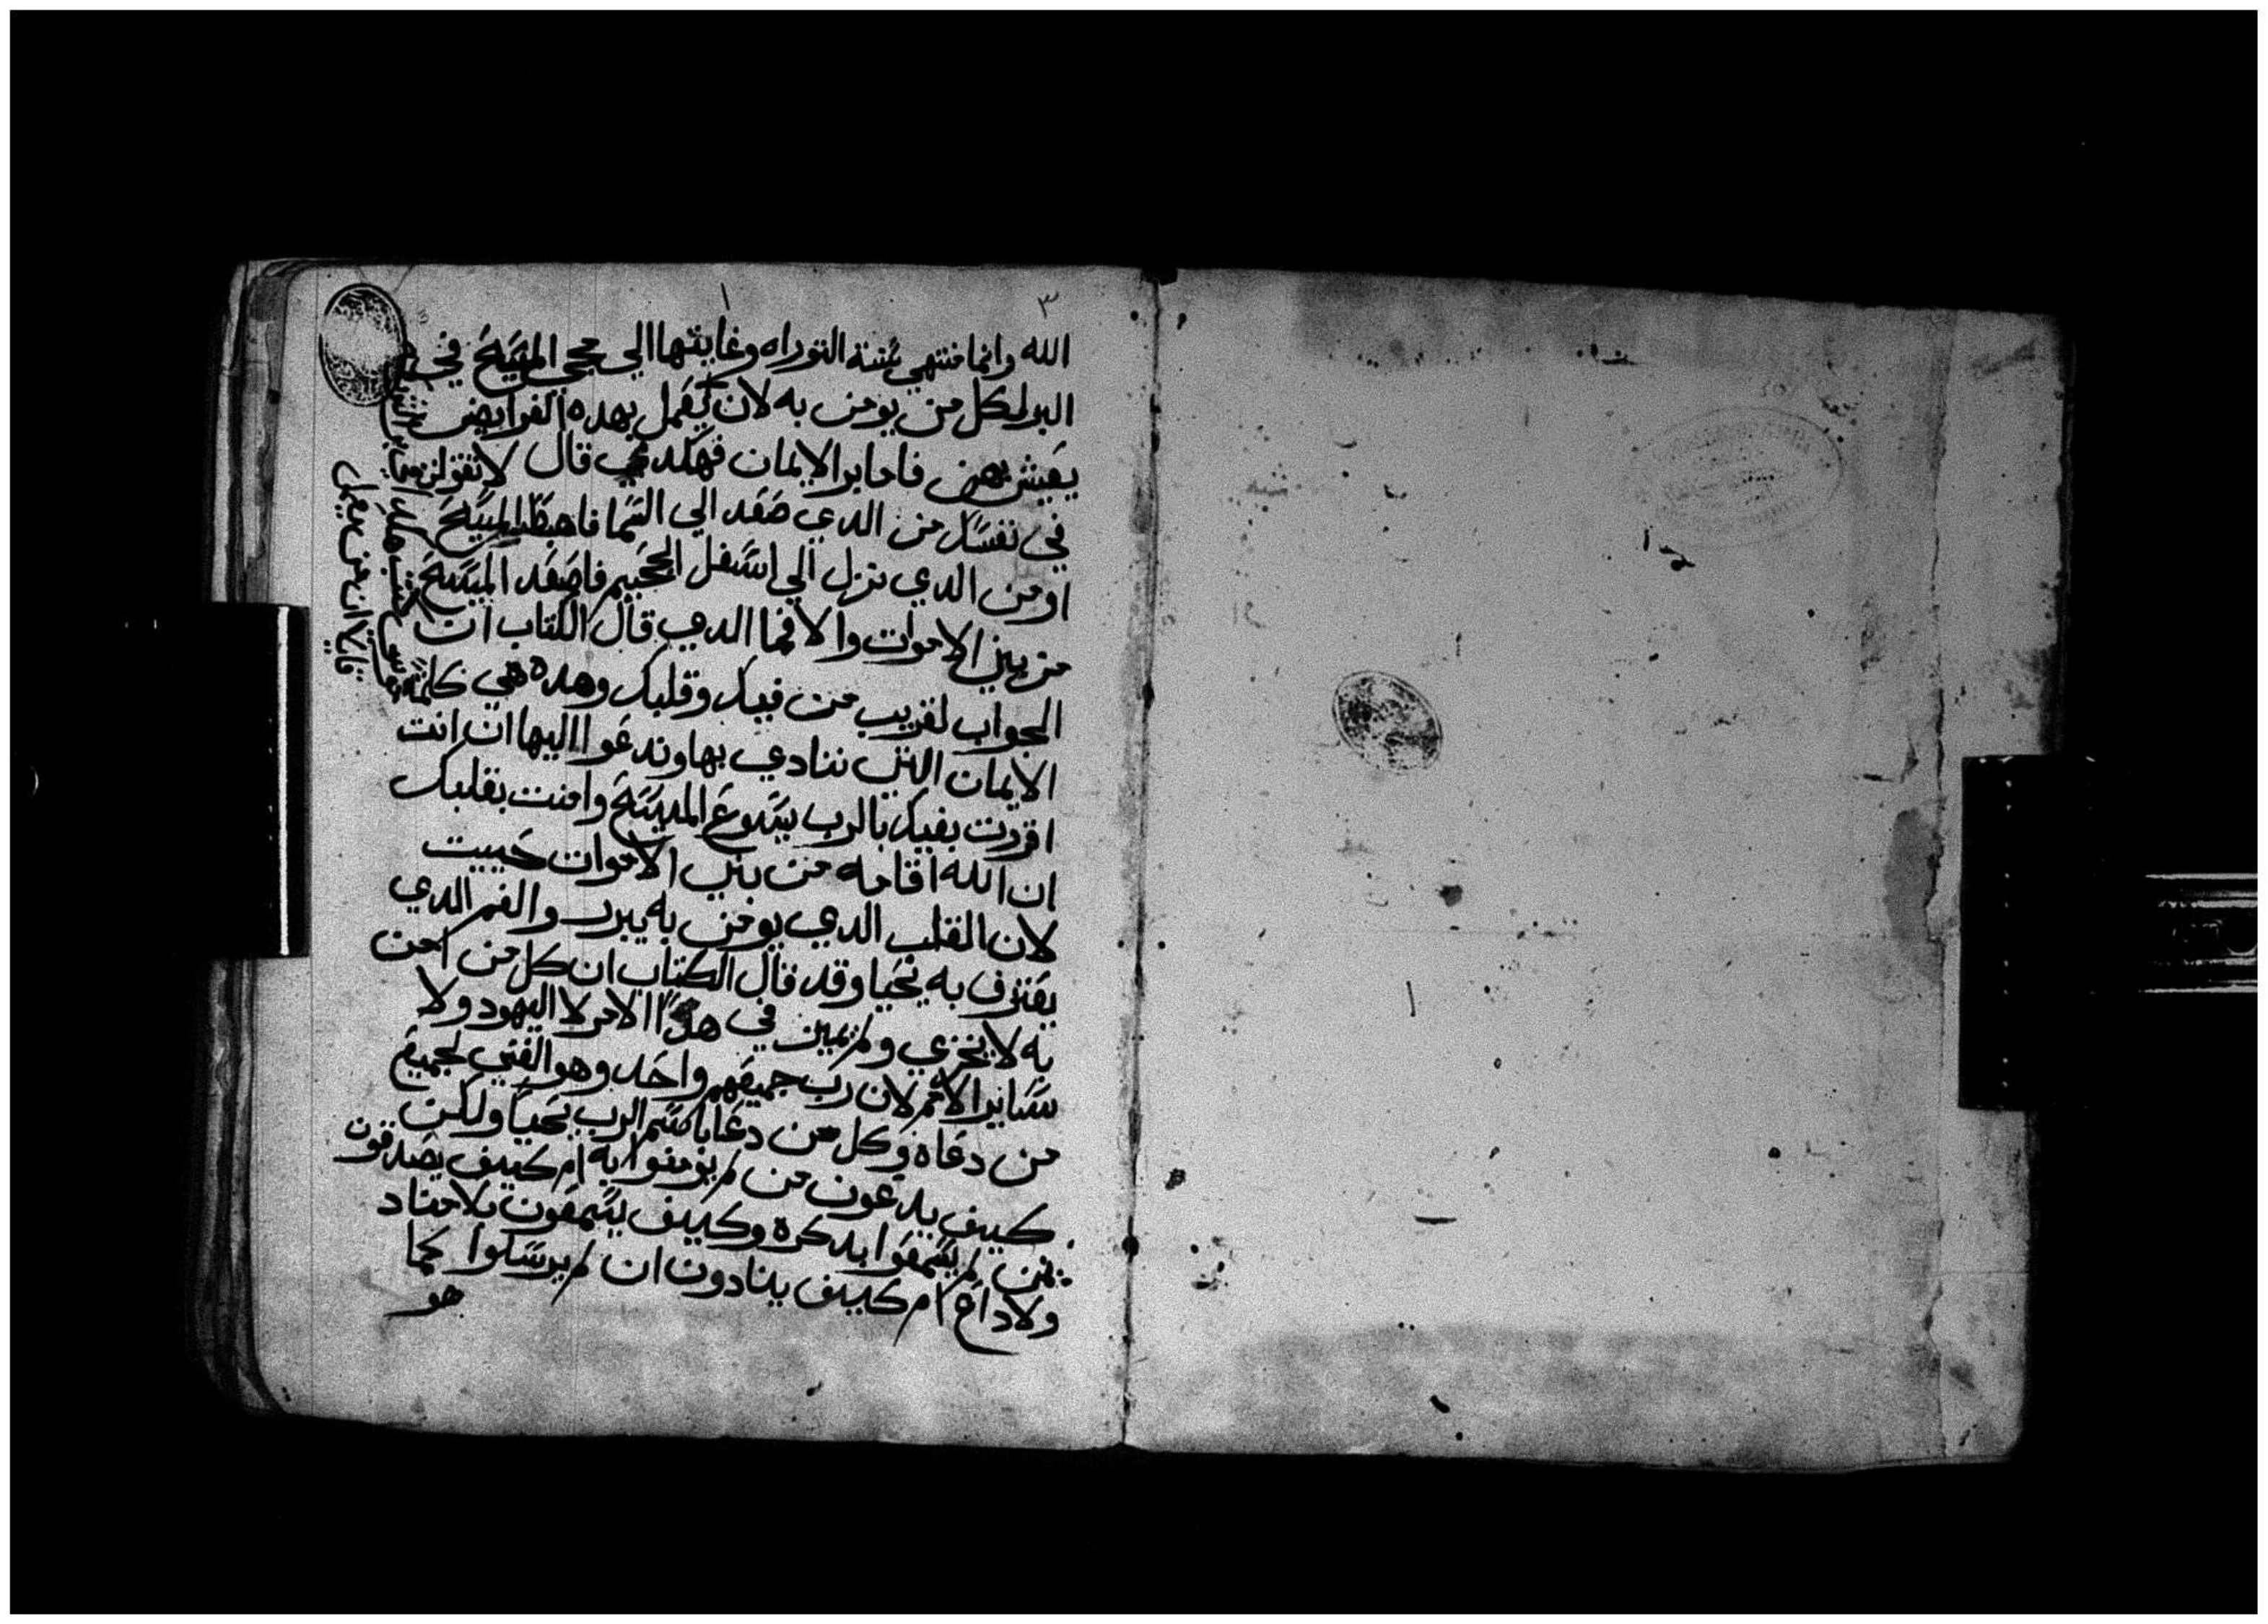 ٣
الله وانما منتهي سنة التوراه وغايتها الي مجي المسيح في
البر لكل من يومن به لان يعمل بهده الفرايض
يعيش بهن فاما بر الايمان فهكدي قال لا تقولن
في نفسك من الدي صعد الي السما فاهبط المسيح
او من الدي نزل الي اسفل الجحيم فاصعد المسيح
من بين الاموات والا فما الدي قال الكتاب ان
الجواب لقريب من فيك وقلبك وهده هي كلمة
الايمان التي ننادي بها وندعوا اليها ان انت
اقررت بفيك بالرب يسوع المسيح وامنت بقلبك
ان الله اقامه من بين الاموات حييت
لان القلب الدي يومن به يبرر والفم الدي
يعترف به يحيا وقد قال الكتاب ان كل من امن
به لا يخزي ولم يميز في هدا الامر لا اليهود ولا
ساير الامم لان رب جميعهم واحد وهو الغني لجميع
من دعاه وكل من دعا باسم الرب يحيا ولكن
كيف يدعون من لم يومنوا به ام كيف يصدقون
بمن لم يسمعوا بدكره وكيف يسمعون بلا مناد
ولا داع ام كيف ينادون ان لم يرسلوا كما
هو